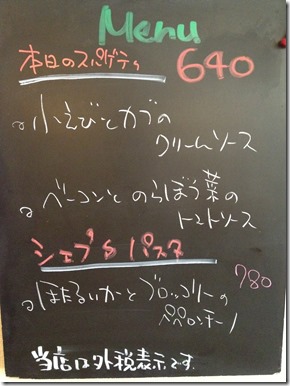 Menu
本日のスパゲティ 640
小えびとカブの
クリームソース
ベーコンとのらぼう菜の
トマトソース
シェフ's パスタ
780
ほたるいかとブロッコリーの
ペペロンチーノ
当店は外税表示です